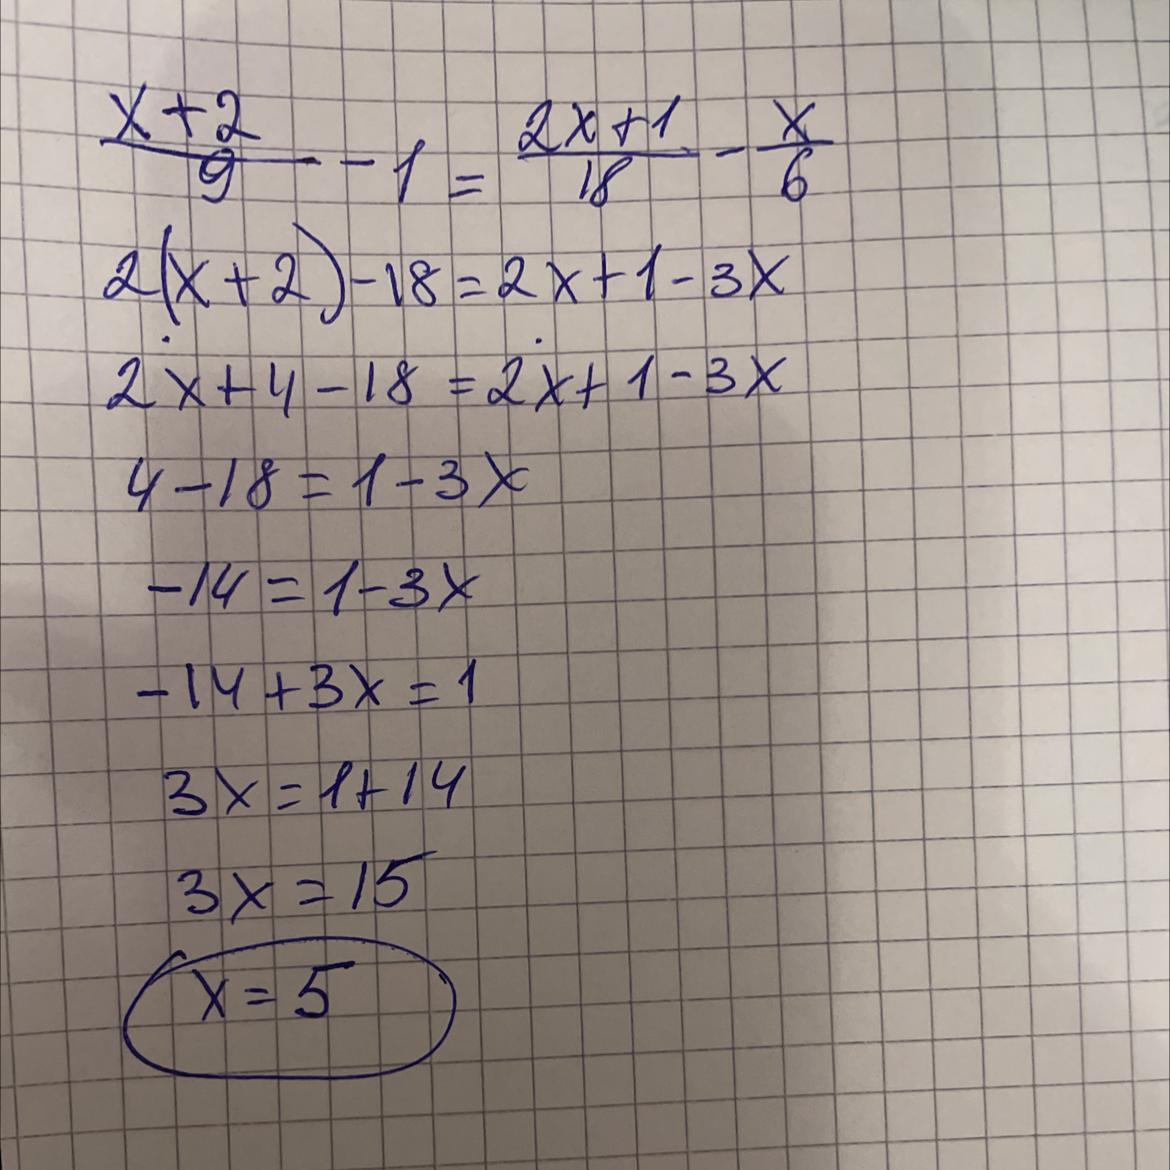 (x+2)/9 - 1 = (2x+1)/18 - x/6
2(x+2)-18=2x+1-3x
2x+4-18=2x+1-3x
4-18=1-3x
-14=1-3x
-14+3x=1
3x=1+14
3x=15
x=5